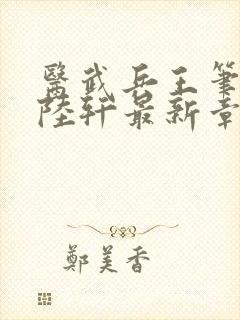 醫武兵王筆
陸軒最新章
鄭美香